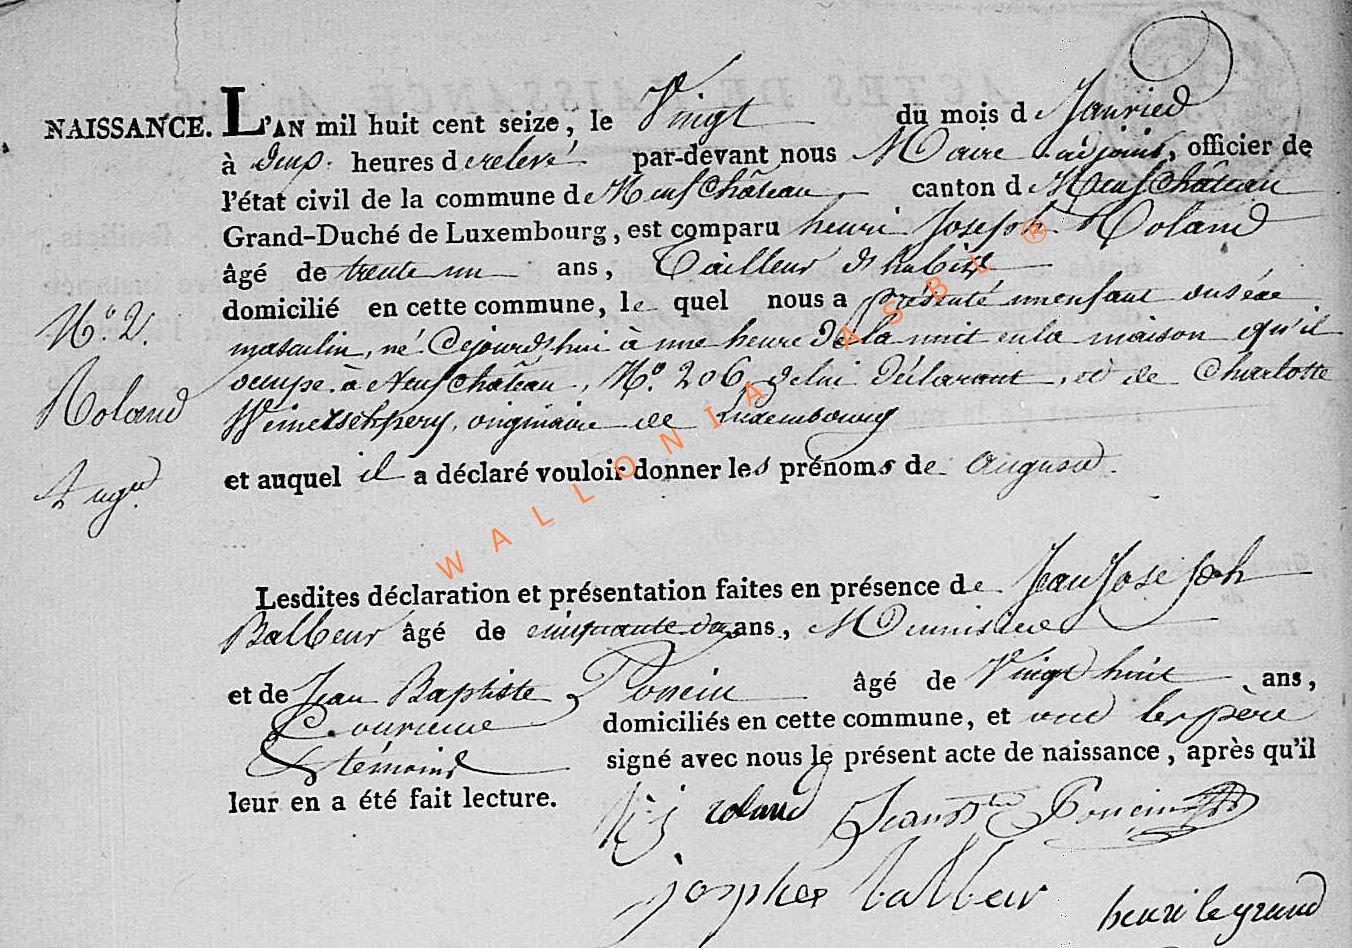 NAISSANCE. L'AN mil huit cent seize, le Vingt du mois d Janvier
à deux heures de relevé par-devant nous Maire adjoint, officier de
l'état civil de la commune de Neufchâteau canton de Neufchâteau
Grand-Duché de Luxembourg, est comparu henri Joseph Roland
âgé de trente un ans, Tailleur d'habits
domicilié en cette commune, le quel nous a présenté un enfant du sexe
N.º 2
masculin, né Cejourd'hui à une heure de la nuit en la maison qu'il
occupe à Neufchâteau, N.º 206, de lui déclarant, et de Charlotte
Roland
originaire de Luxembourg
et auquel il a déclaré vouloir donner les prénoms de Auguste.
Augte
Lesdites déclaration et présentation faites en présence de Jean Joseph
Balbeur âgé de cinquante ans, Menuisier
et de Jean Baptiste Poncin âgé de Vingt huit ans,
domiciliés en cette commune, et ont les père
& témoins signé avec nous le présent acte de naissance, après qu'il
leur en a été fait lecture.
h j roland Jean Bte Poncin
joseph balbeur henri legrand
WALLONIA ASBL ®